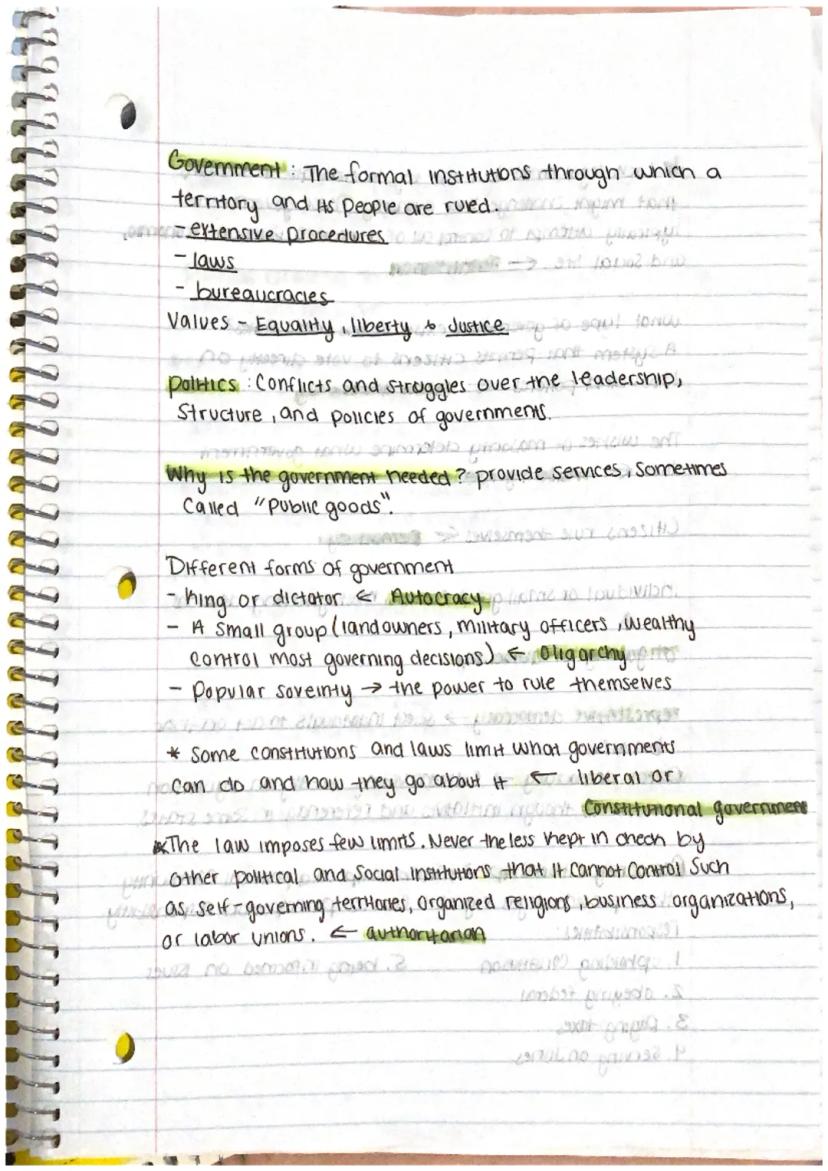 Government : The formal institutions through which a
territory and its people are ruled.
- extensive procedures
- laws
- bureaucracies
Values - Equality, liberty & Justice
Politics : Conflicts and struggles over the leadership,
Structure, and policies of governments.
Why is the government needed? provide services, Sometimes
Called "public goods".
Different forms of government
- king or dictator ← Autocracy
- A small group (landowners, military officers, wealthy
control most governing decisions) ← Oligarchy
- Popular soveinty → the power to rule themselves
* Some constitutions and laws limit what governments
can do and how they go about it ← liberal or
Constitutional government
*The law imposes few limits. Never the less kept in check by
other political and Social institutions that it cannot Control Such
as self-governing territories, organized religions, business organizations,
or labor unions. ← authoritarian